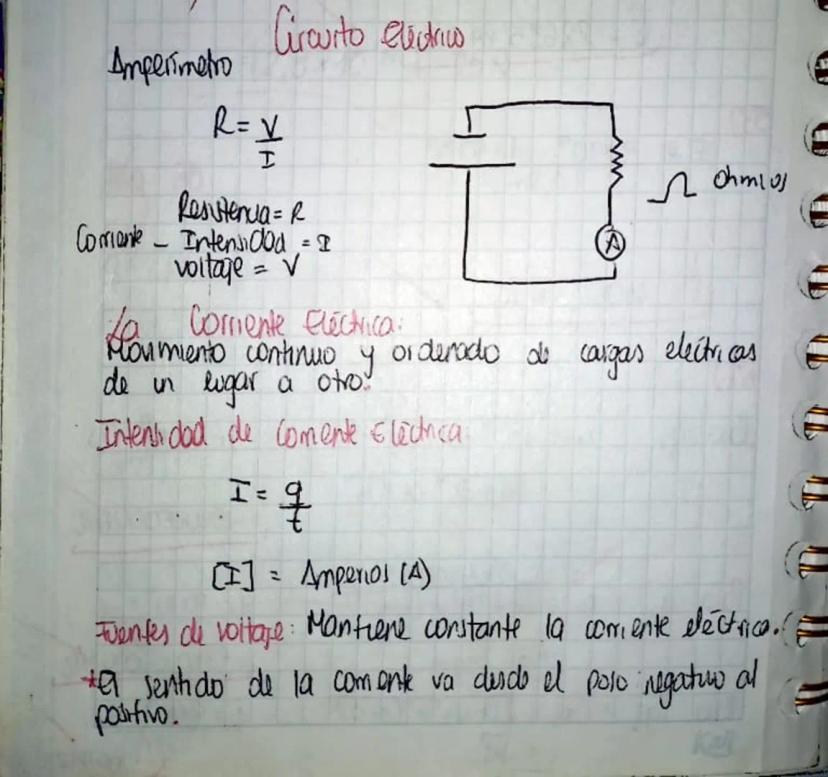 Circuito Eléctrico
Amperímetro
R = V
I
A
Ω Ohmios
Resistencia = R
Corriente - Intensidad = I
voltaje = V
La Corriente Eléctrica:
Movimiento continuo y ordenado de cargas eléctricas
de un lugar a otro.
Intensidad de Corriente Eléctrica
I = q
t
[I] = Amperios (A)
Fuentes de voltaje: Mantiene constante la corriente eléctrica.
*El sentido de la corriente va desde el polo negativo al
positivo.